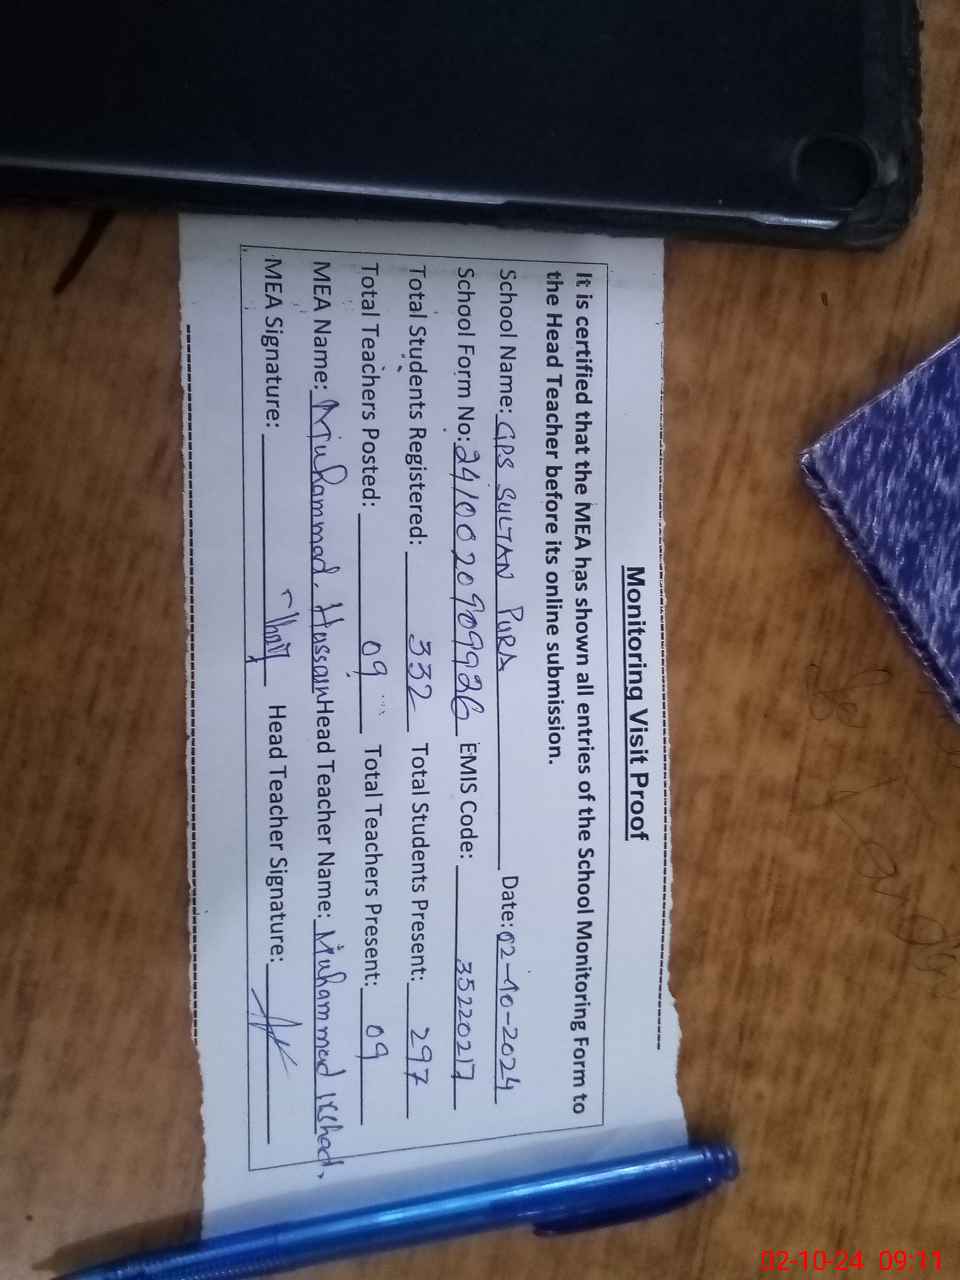 Monitoring Visit Proof
It is certified that the MEA has shown all entries of the School Monitoring Form to
the Head Teacher before its online submission.
School Name: GPS SULTAN PURA Date: 02-10-2024
School Form No: 2410020909926 EMIS Code: 35220217
Total Students Registered: 332 Total Students Present: 297
Total Teachers Posted: 09 Total Teachers Present: 09
MEA Name: Muhammad Hassain Head Teacher Name: Muhammad Irshad
MEA Signature: Head Teacher Signature:
02-10-24 09:11